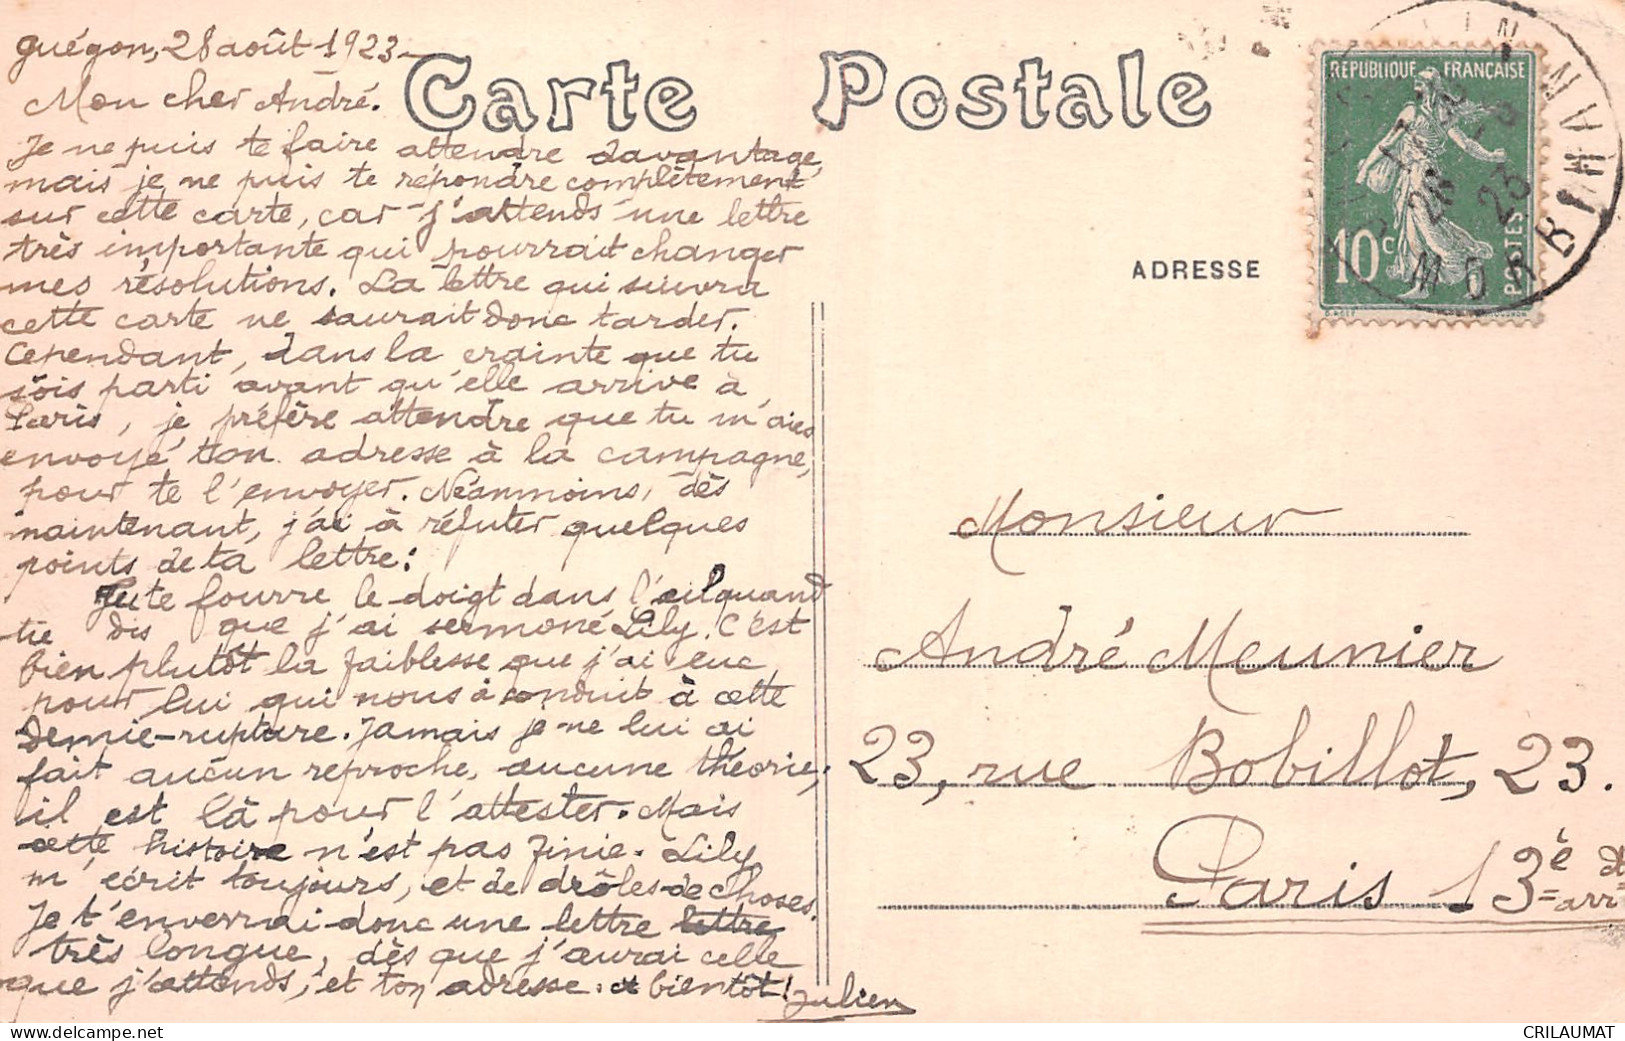 Guégon, 28 août 1923.
Carte Postale
Mon cher André.
Je ne puis te faire attendre davantage,
mais je ne puis te répondre complètement
sur cette carte, car j'attends une lettre
très importante qui pourrait changer
mes résolutions. La lettre qui suivra
cette carte ne saurait donc tarder.
Cependant, dans la crainte que tu
sois parti avant qu'elle arrive à
Paris, je préfère attendre que tu m'aies
envoyé ton adresse à la campagne,
pour te l'envoyer. Néanmoins, dès
maintenant, j'ai à réfuter quelques
points de ta lettre:
Tu te fourre le doigt dans l'œil quand
tu dis que j'ai sermoné Lily. C'est
bien plutôt la faiblesse que j'ai eue
pour lui qui nous a conduit à cette
demie-rupture. Jamais je ne lui ai
fait aucun reproche, aucune théorie;
il est là pour l'attester. Mais
cette histoire n'est pas finie. Lily
m'écrit toujours, et de drôles de choses.
Je t'enverrai donc une lettre lettre
très longue, dès que j'aurai celle
que j'attends, et ton adresse. A bientôt!
Julien
RÉPUBLIQUE FRANÇAISE
10c
POSTES
MORBIHAN
28
23
ADRESSE
Monsieur
André Meunier
23, rue Bobillot, 23.
Paris 13è arrdt
CRILAUMAT